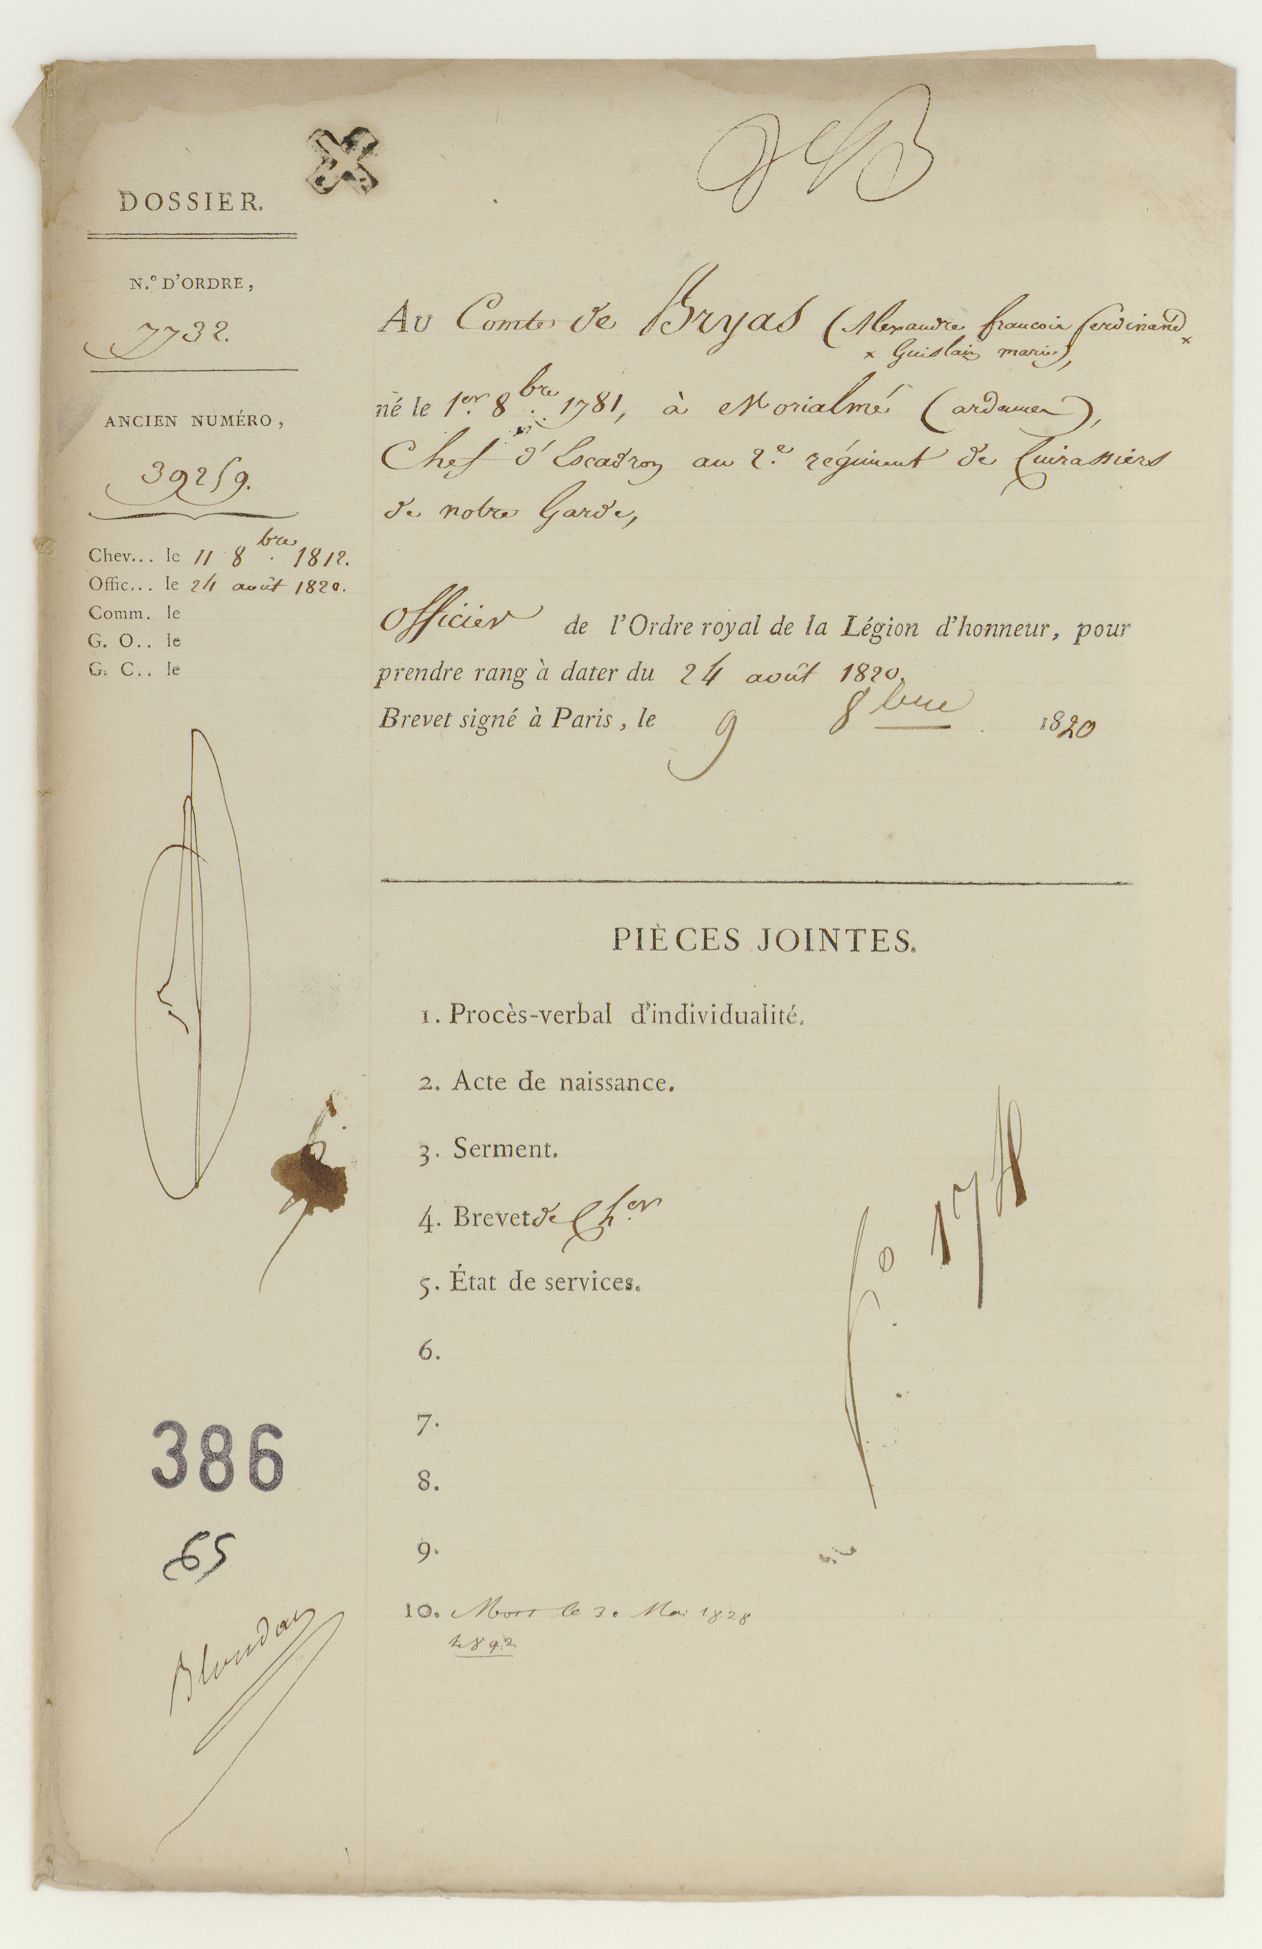 DOSSIER.
N.º D'ORDRE,
7732.
ANCIEN NUMÉRO,
39259.
Chev... le 11 8bre 1812.
Offic... le 24 août 1820.
Comm. le
G. O.. le
G. C.. le
386
65
B
Au Comte de Bryas (Alexandre francois ferdinand x
x Guislain marie),
né le 1er. 8bre. 1781, à Morialmé (ardennes),
Chef d'Escadron au 2.e régiment de Cuirassiers
de notre Garde,
Officier de l'Ordre royal de la Légion d'honneur, pour
prendre rang à dater du 24 août 1820.
Brevet signé à Paris, le 9 8bre 1820
PIÈCES JOINTES.
1. Procès-verbal d'individualité.
2. Acte de naissance.
3. Serment.
4. Brevet de Cher
5. État de services.
6.
7.
8.
9.
10. Mort le 30 Mai 1828